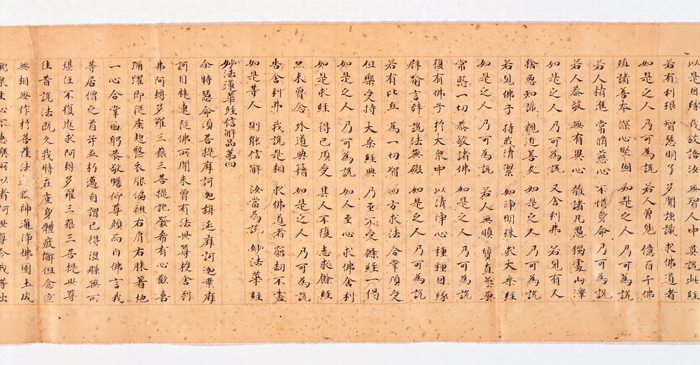 以是因緣 我故語汝 無智人中 莫說此經
若有利根 智慧明了 多聞強識 求佛道者
如是之人 乃可為說 若人曾見 億百千佛
殖諸善本 深心堅固 如是之人 乃可為說
若人精進 常脩慈心 不惜身命 乃可為說
若人恭敬 無有異心 離諸凡愚 獨處山澤
如是之人 乃可為說 又舍利弗 若見有人
捨惡知識 親近善友 如是之人 乃可為說
若見佛子 持戒清潔 如淨明珠 求大乘經
如是之人 乃可為說 若人無瞋 質直柔軟
常愍一切 恭敬諸佛 如是之人 乃可為說
復有佛子 於大衆中 以清淨心 種種因緣
譬喻言辭 說法無礙 如是之人 乃可為說
若有比丘 為一切智 四方求法 合掌頂受
但樂受持 大乘經典 乃至不受 餘經一偈
如是之人 乃可為說 如人至心 求佛舍利
如是求經 得已頂受 其人不復 志求餘經
亦未曾念 外道典籍 如是之人 乃可為說
告舍利弗 我說是相 求佛道者 窮劫不盡
如是等人 則能信解 汝當為說 妙法華經
妙法蓮華經信解品第四
尒時慧命須菩提摩訶迦旃延摩訶迦葉摩
訶目揵連從佛所聞未曾有法世尊授舍利
弗阿耨多羅三藐三菩提記發希有心歡喜
踊躍即從座起整衣服偏袒右肩右膝著地
一心合掌曲躬恭敬瞻仰尊顏而白佛言我
等居僧之首年並朽邁自謂已得涅槃無所
堪任不復進求阿耨多羅三藐三菩提世尊
往昔說法既久我時在座身體疲懈但念空
無相無作於菩薩法遊戲神通淨佛國土成
就衆生心不喜樂所以者何世尊令我等出